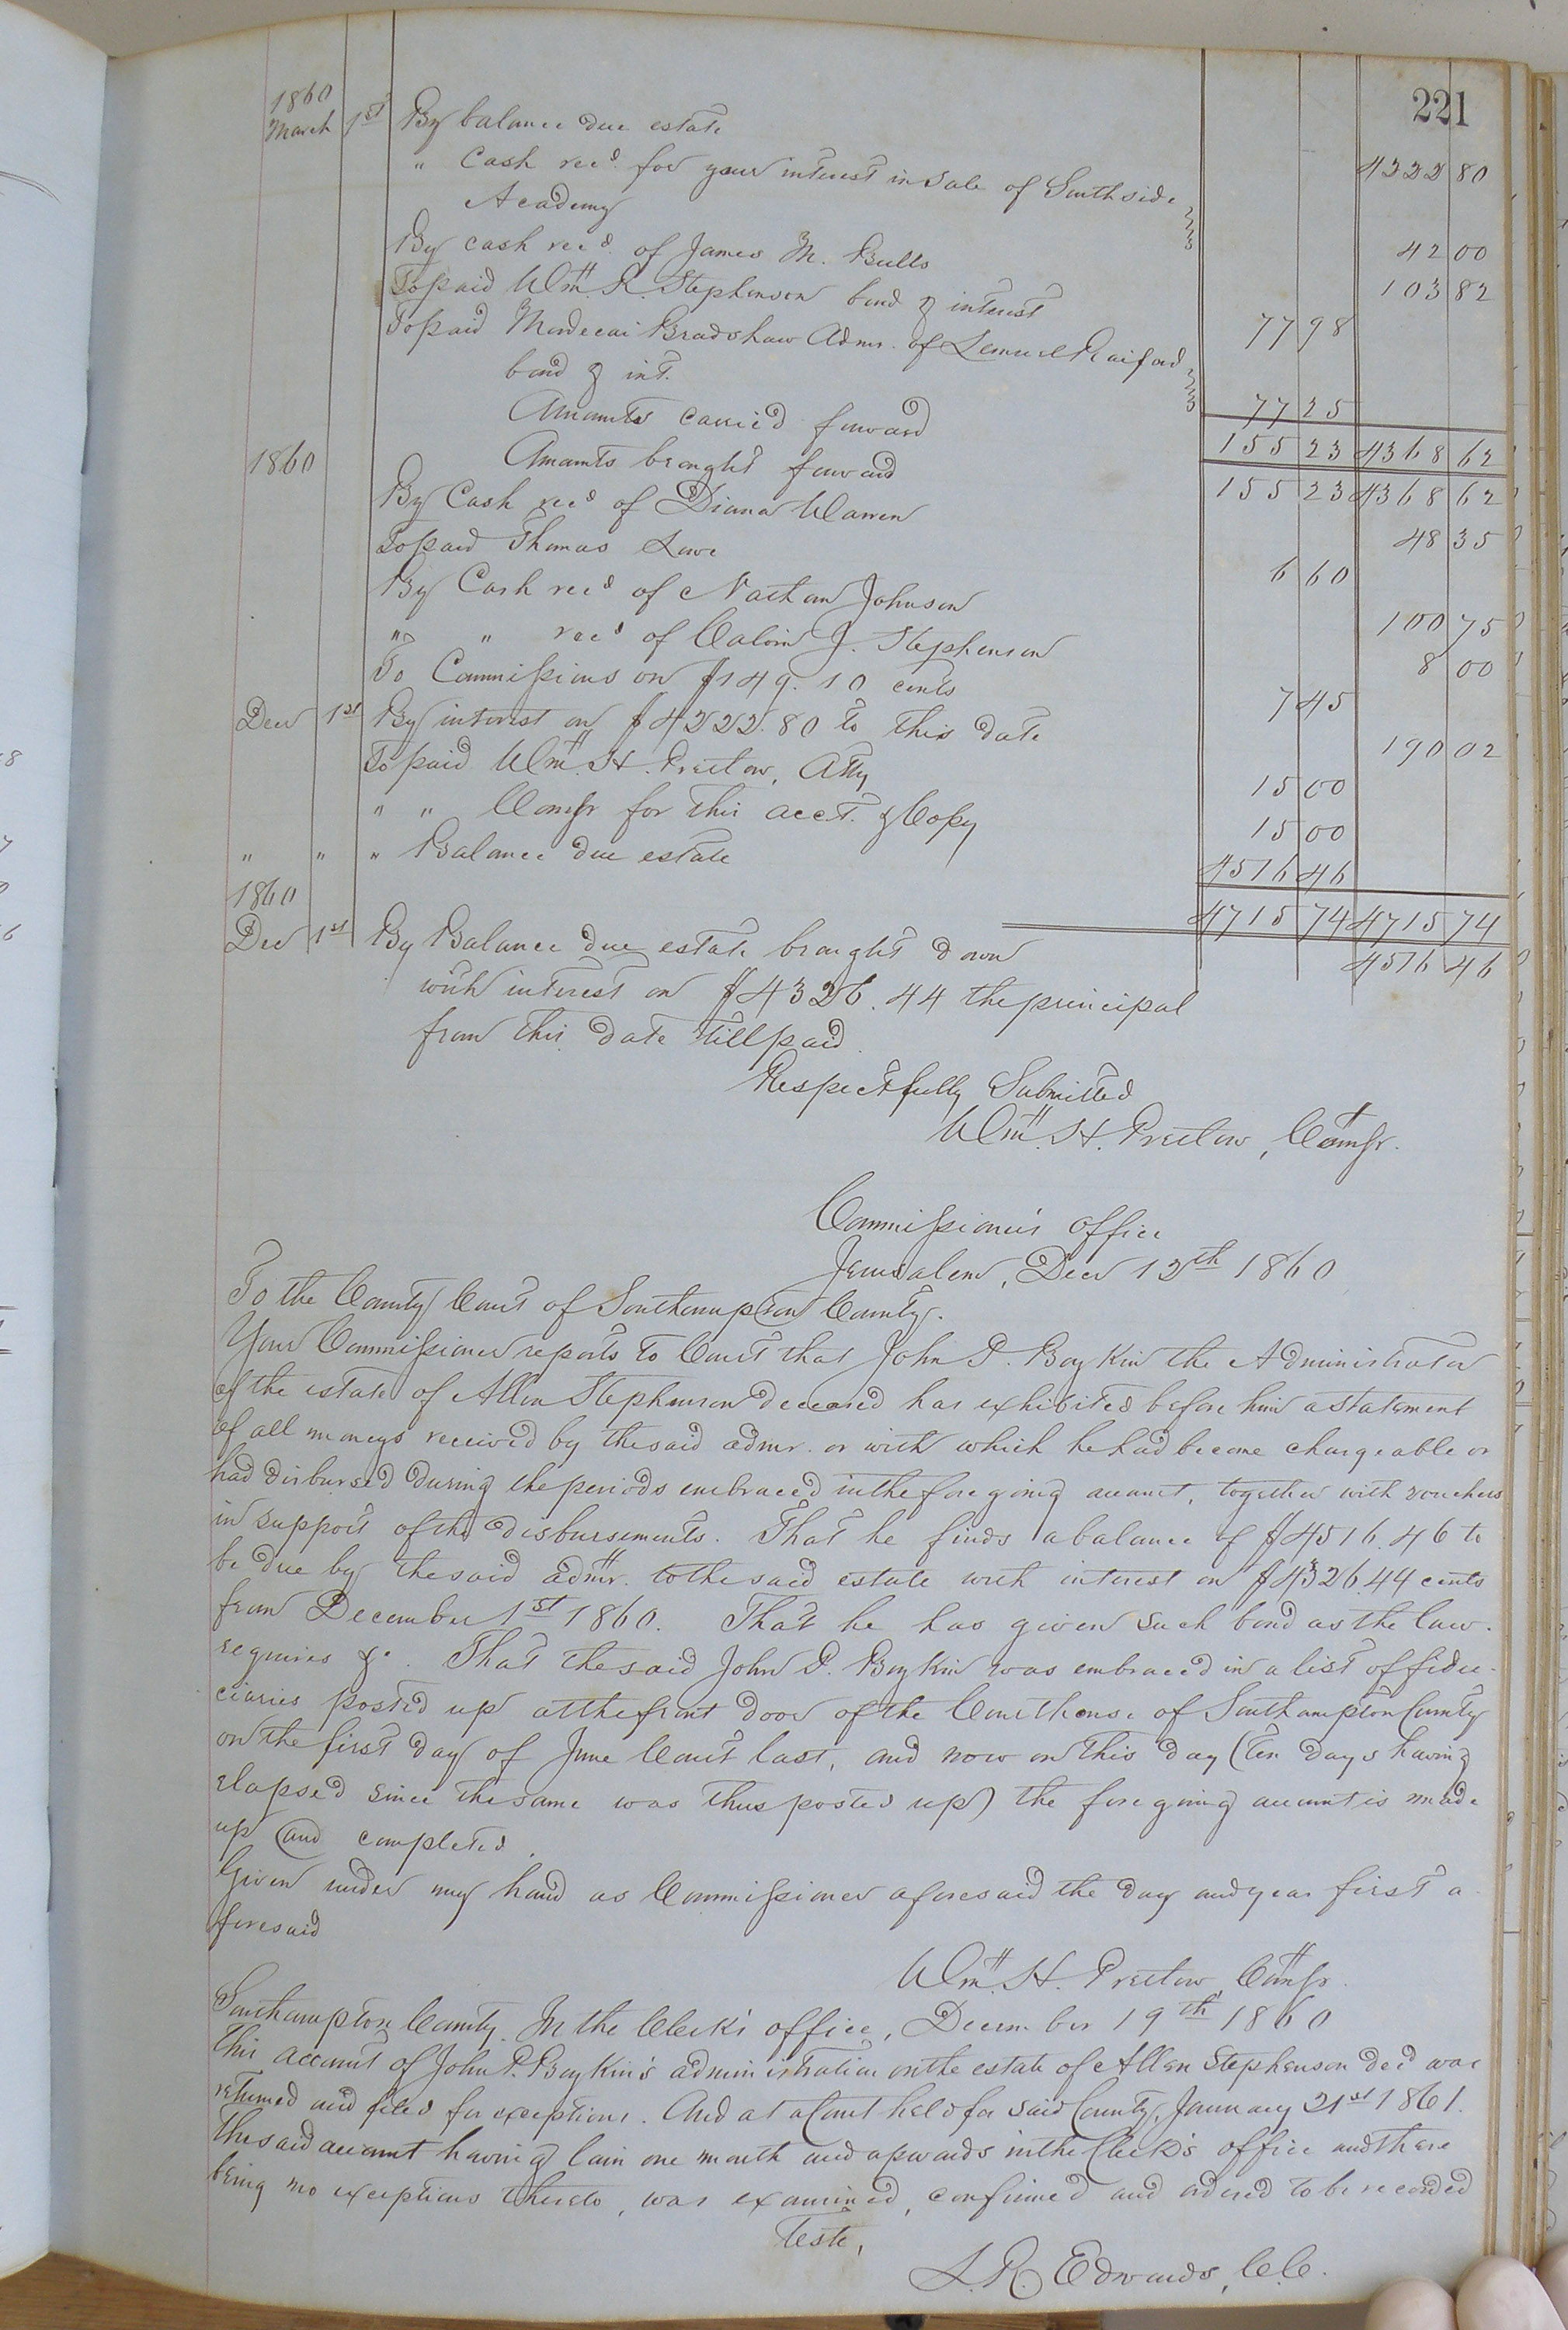 221
1860
March 1st By balance due estate 4222 80
" Cash recd. for your interest in Sale of Southside
Academy 42 00
By cash recd. of James M. Butts 103 82
To paid Wm. R. Stephenson bond & interest 77 98
To paid Mordecai Bradshaw Admr. of Lemuel Raiford
bond & int. 77 25
Amounts carried forward 155 23 4368 62
1860 Amounts brought forward 155 23 4368 62
By Cash recd of Diana Warren 48 35
To paid Thomas Love 6 60
By Cash recd of Nathan Johnson 100 75
" " recd of Calvin J. Stephenson 8 00
To Commissions on $149.10 cents 7 45
Decr 1st By interest on $4222.80 to this date 190 02
To paid Wm. H. Pretlow, Atty 15 00
" " Comsr for this acct. & Copy 15 00
" " " Balance due estate 4516 46
1860 4715 74 4715 74
Dec 1st By Balance due estate brought down 4516 46
with interest on $4326.44 the principal
from this date till paid.
Respectfully Submitted
Wm. H. Pretlow, Comsr.
Commissioner's Office
Jerusalem, Decr 12th 1860
To the County Court of Southampton County.
Your Commissioner reports to Court that John P. Boykin the Administrator
of the estate of Allen Stephenson deceased has exhibited before him a statement
of all moneys received by the said admr. or with which he had become chargeable or
had disbursed during the periods embraced in the foregoing account, together with vouchers
in support of the disbursements. That he finds a balance of $4516.46 to
be due by the said admr. to the said estate with interest on $4326.44 cents
from December 1st 1860. That he has given such bond as the law
requires &c. That the said John P. Boykin was embraced in a list of fidu-
ciaries posted up at the front door of the Courthouse of Southampton County
on the first day of June Court last, and now on this day (ten days having
elapsed since the same was thus posted up) the foregoing account is made
up and completed.
Given under my hand as Commissioner aforesaid the day and year first a
foresaid
Wm. H. Pretlow, Comsr.
Southampton County. In the Clerk's office, December 19th 1860
This account of John P. Boykin's administration on the estate of Allen Stephenson decd was
returned and filed for exceptions. And at a Court held for said County, January 21st 1861.
The said account having lain one month and upwards in the Clerk's office and there
being no exceptions thereto, was examined, confirmed and ordered to be recorded
Teste,
L. R. Edwards, C.C.